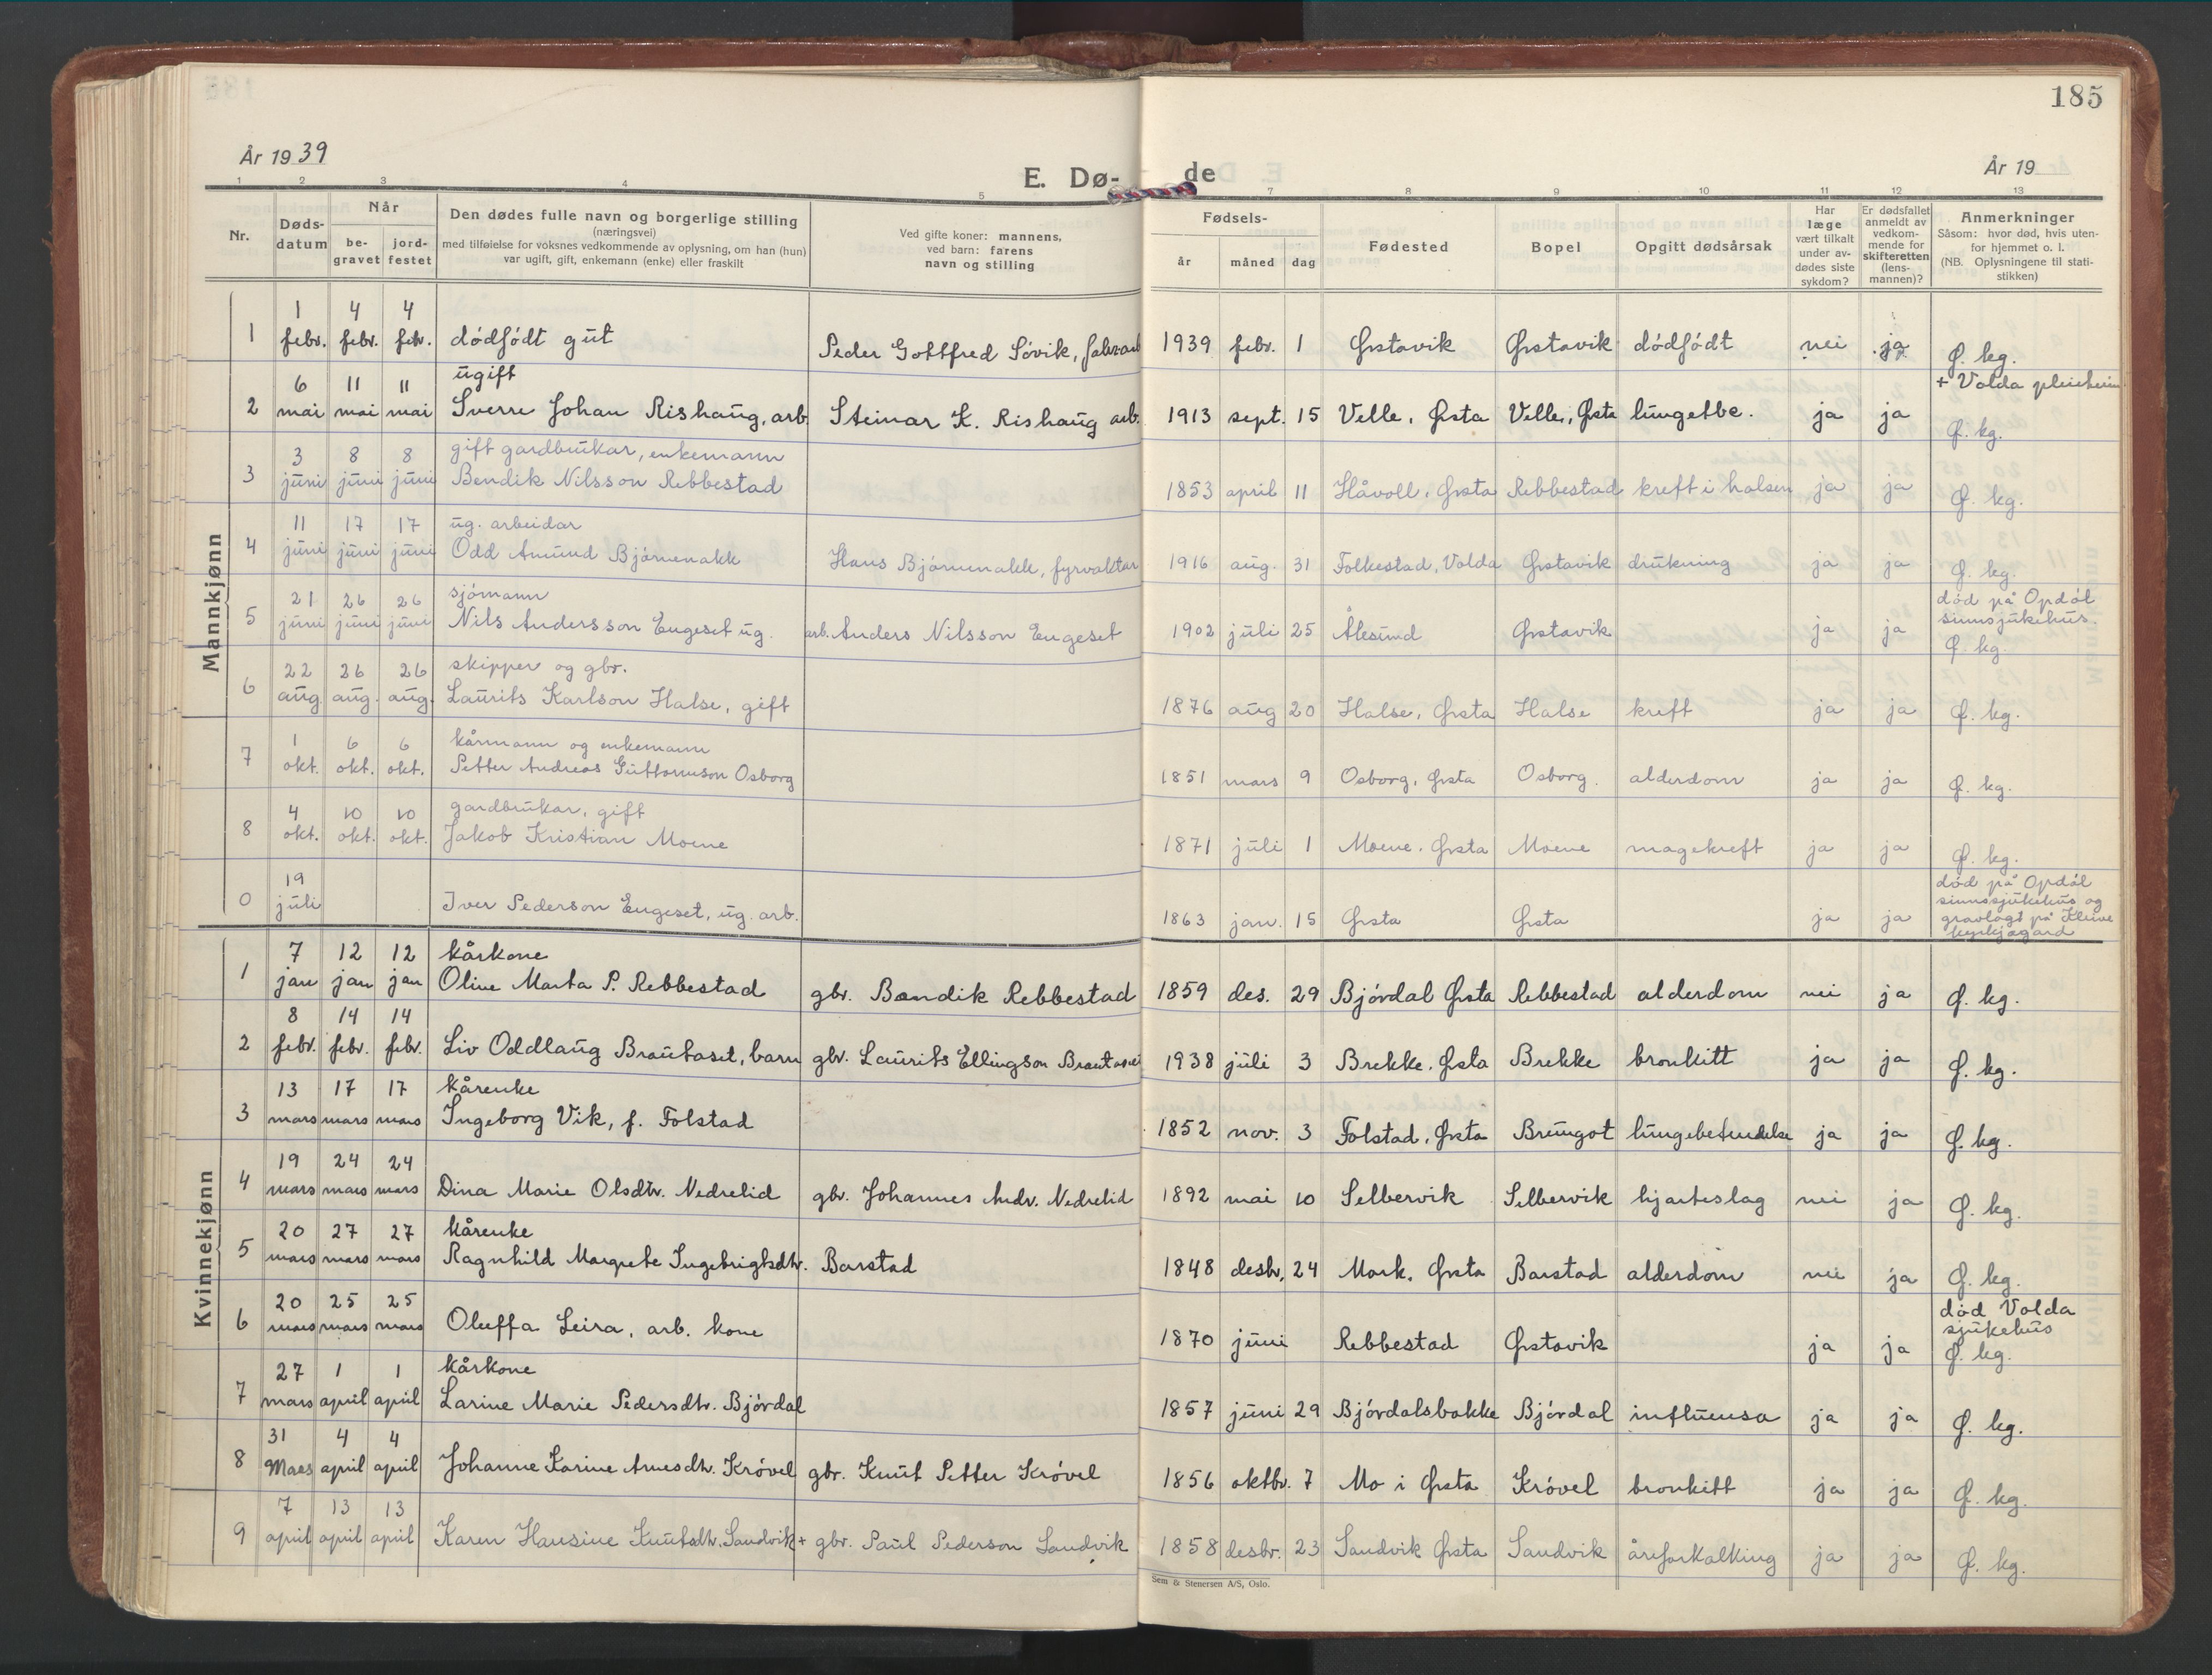 185
År 1939
År 19
E. Dø-
de
1 2 3 4 5 7 8 9 10 11 12 13
Nr.
Døds-
datum
Når
be-
gravet
jord-
festet
Den dødes fulle navn og borgerlige stilling
(næringsvei)
med tilføielse for voksnes vedkommende av oplysning, om han (hun)
var ugift, gift, enkemann (enke) eller fraskilt
Ved gifte koner: mannens,
ved barn: farens
navn og stilling
Fødsels-
år måned dag
Fødested
Bopel
Opgitt dødsårsak
Har
læge
vært tilkalt
under av-
dødes siste
sykdom?
Er dødsfallet
anmeldt av
vedkom-
mende for
skifteretten
(lens-
mannen)?
Anmerkninger
Såsom: hvor død, hvis uten-
for hjemmet o. l.
(NB. Oplysningene til stati-
stikken)
Mannkjønn
1 4 4
1 febr. febr. febr. dódfódt gut Peder Gottfred Sóvik, 1939 febr. 1 Ørstavik Ørstavik dódfódt nei ja Ø. kg.
6 11 11 ugift + Volda pleieheim
2 mai mai mai Sverre Johan Rishaug, arb. Steinar K. Rishaug arb. 1913 sept. 15 Velle, Ørsta Velle, Ørsta lungetbc. ja ja Ø. kg.
3 8 8 gift gardbrukar, enkemann
3 juni juni juni Bendik Nilsson Rebbestad 1853 april 11 Håvoll, Ørsta Rebbestad kreft i halsen ja ja Ø. kg.
11 17 17 ug. arbeidar
4 juni juni juni Odd Amund Bjórnenakk Hans Bjórnenakk, fyrvaktar 1916 aug. 31 Folkestad, Volda Ørstavik drukning ja ja Ø. kg.
21 26 26 sjómann død på Opdól
5 juni juni juni Nils Andersson Engeset ug. arb. Anders Nilsson Engeset 1902 juli 25 Ålesund Ørstavik ja ja sinnsjukehus.
Ø. kg.
22 26 26 skipper og gbr.
6 aug. aug. aug. Laurits Karlson Halse, gift 1876 aug 20 Halse, Ørsta Halse kreft ja ja Ø. kg.
1 6 6 kårmann og enkemann
7 okt. okt. okt. Petter Andreas Guttormson Osborg 1851 mars 9 Osborg, Ørsta Osborg. alderdom ja ja Ø. kg.
4 10 10 gardbrukar, gift
8 okt. okt. okt. Jakob Kristian Moene 1871 juli 1 Moene. Ørsta Moene magekreft ja ja Ø. kg.
19 død på Opdól
0 juli Iver Pederson Engeset, ug. arb. 1863 jan. 15 Ørsta Ørsta ja ja sinnssjukehus og
gravlagt på Kleive
kyrkjegard
Kvinnekjønn
7 12 12 kårkone
1 jan jan jan Oline Marta P. Rebbestad gbr. Bendik Rebbestad 1859 des. 29 Bjórdal Ørsta Rebbestad alderdom nei ja Ø. kg.
8 14 14
2 febr. febr. febr. Liv Oddlaug Brautaset, barn gbr. Laurits Ellingson Brautaset 1938 juli 3 Brekke, Ørsta Brekke bronkitt ja ja Ø. kg.
13 17 17 kårenke
3 mars mars mars Ingeborg Vik, f. Folstad 1852 nov. 3 Folstad, Ørsta Brungot lungebetendelse ja ja Ø. kg.
19 24 24
4 mars mars mars Dina Marie Olsdtr. Nedrelid gbr. Johannes Andr. Nedrelid 1892 mai 10 Selbervik Selbervik hjarteslag nei ja Ø. kg.
20 27 27 kårenke
5 mars mars mars Ragnhild Margrete Ingebrigtsdtr. Barstad 1848 desbr. 24 Mork, Ørsta Barstad alderdom nei ja Ø. kg.
20 25 25 død Volda
6 mars mars mars Oluffa Leira, arb. kone 1870 juni Rebbestad Ørstavik ja ja sjukehus
Ø. kg.
27 1 1 kårkone
7 mars april april Larine Marie Pedersdtr. Bjórdal 1857 juni 29 Bjórdalsbakke Bjórdal influensa ja ja Ø. kg.
31 4 4
8 Mars april april Johanne Karine Arnesdtr. Króvel gbr. Knut Petter Króvel 1856 oktbr. 7 Mo i Ørsta Króvel bronkitt ja ja Ø. kg.
7 13 13
9 april april april Karen Hansine Knutsdtr. Sandvik + gbr. Paul Pederson Sandvik 1858 desbr. 23 Sandvik Ørsta Sandvik åreforkalking ja ja Ø. kg.
Sem & Stenersen A/S, Oslo.